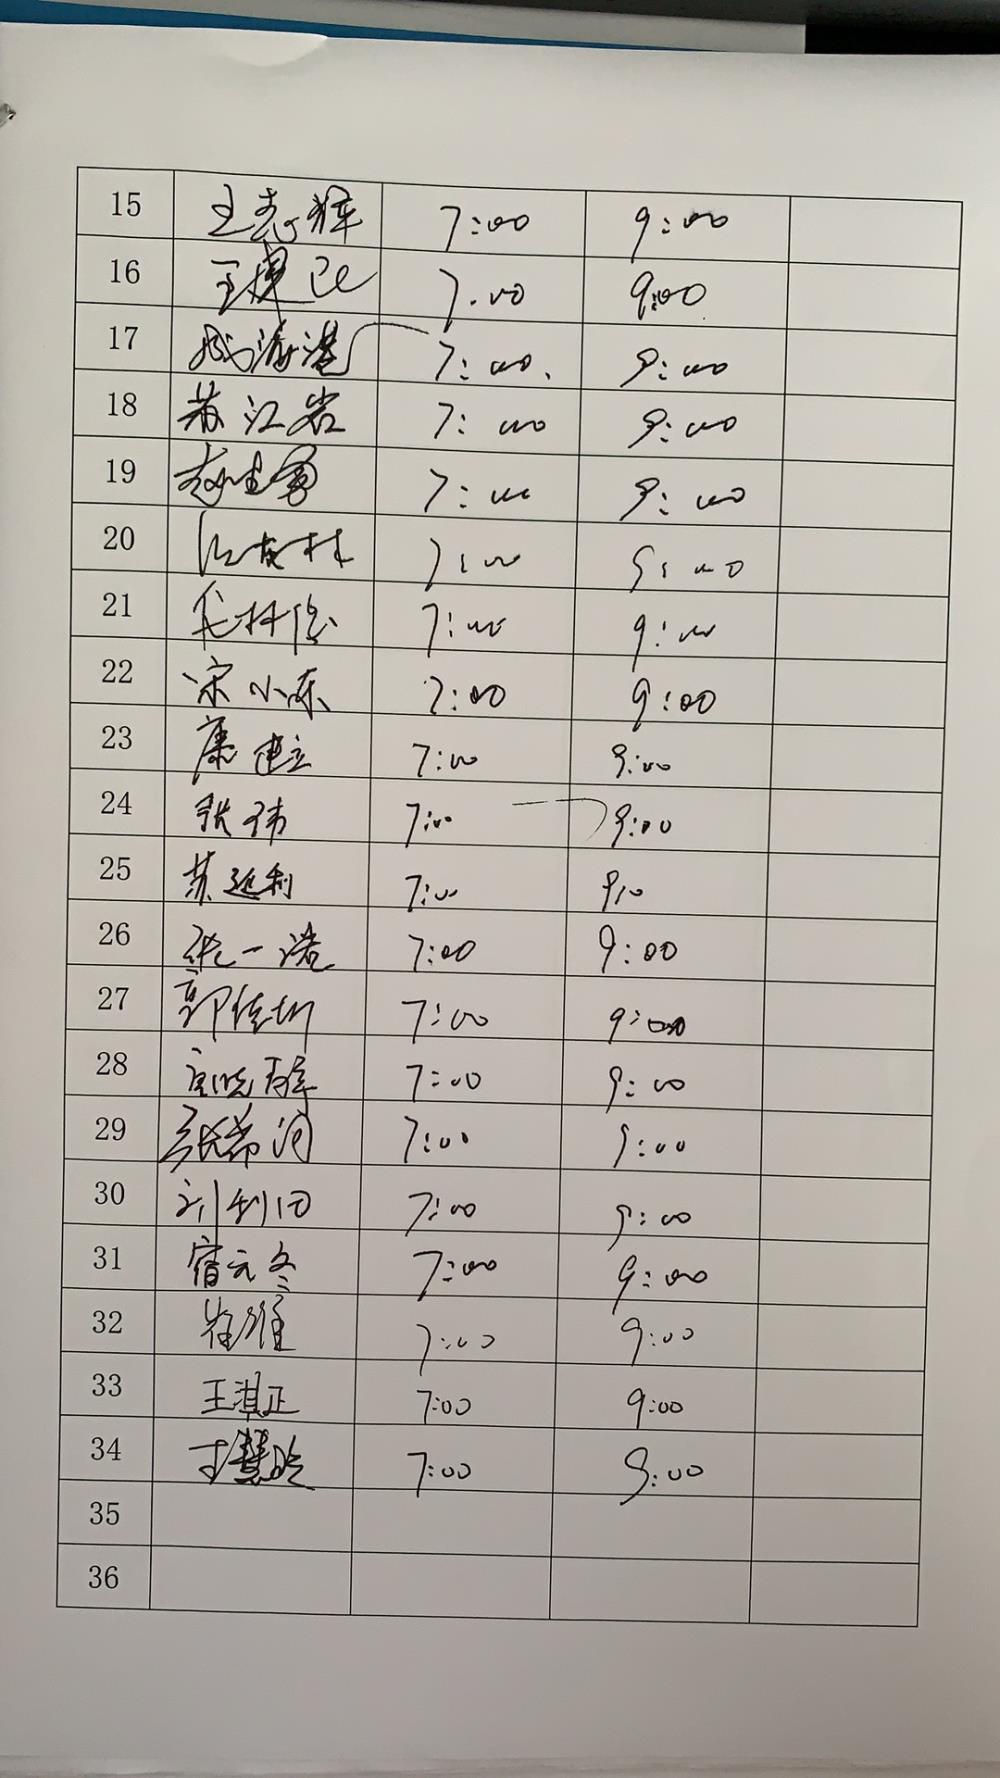 15 王志辉 7:00 9:00
16 王建 7:00 9:00
17 海港 7:00 9:00
18 苏江岩 7:00 9:00
19 7:00 9:00
20 7:00 9:00
21 7:00 9:00
22 宋小东 7:00 9:00
23 康建立 7:00 9:00
24 张伟 7:00 9:00
25 苏延利 7:00
26 张一诺 7:00 9:00
27 郭佳 7:00 9:00
28 7:00 9:00
29 张希 7:00 9:00
30 刘利 7:00 9:00
31 宿元冬 7:00 9:00
32 崔维 7:00 9:00
33 王淇正 7:00 9:00
34 慧 7:00 9:00
35
36